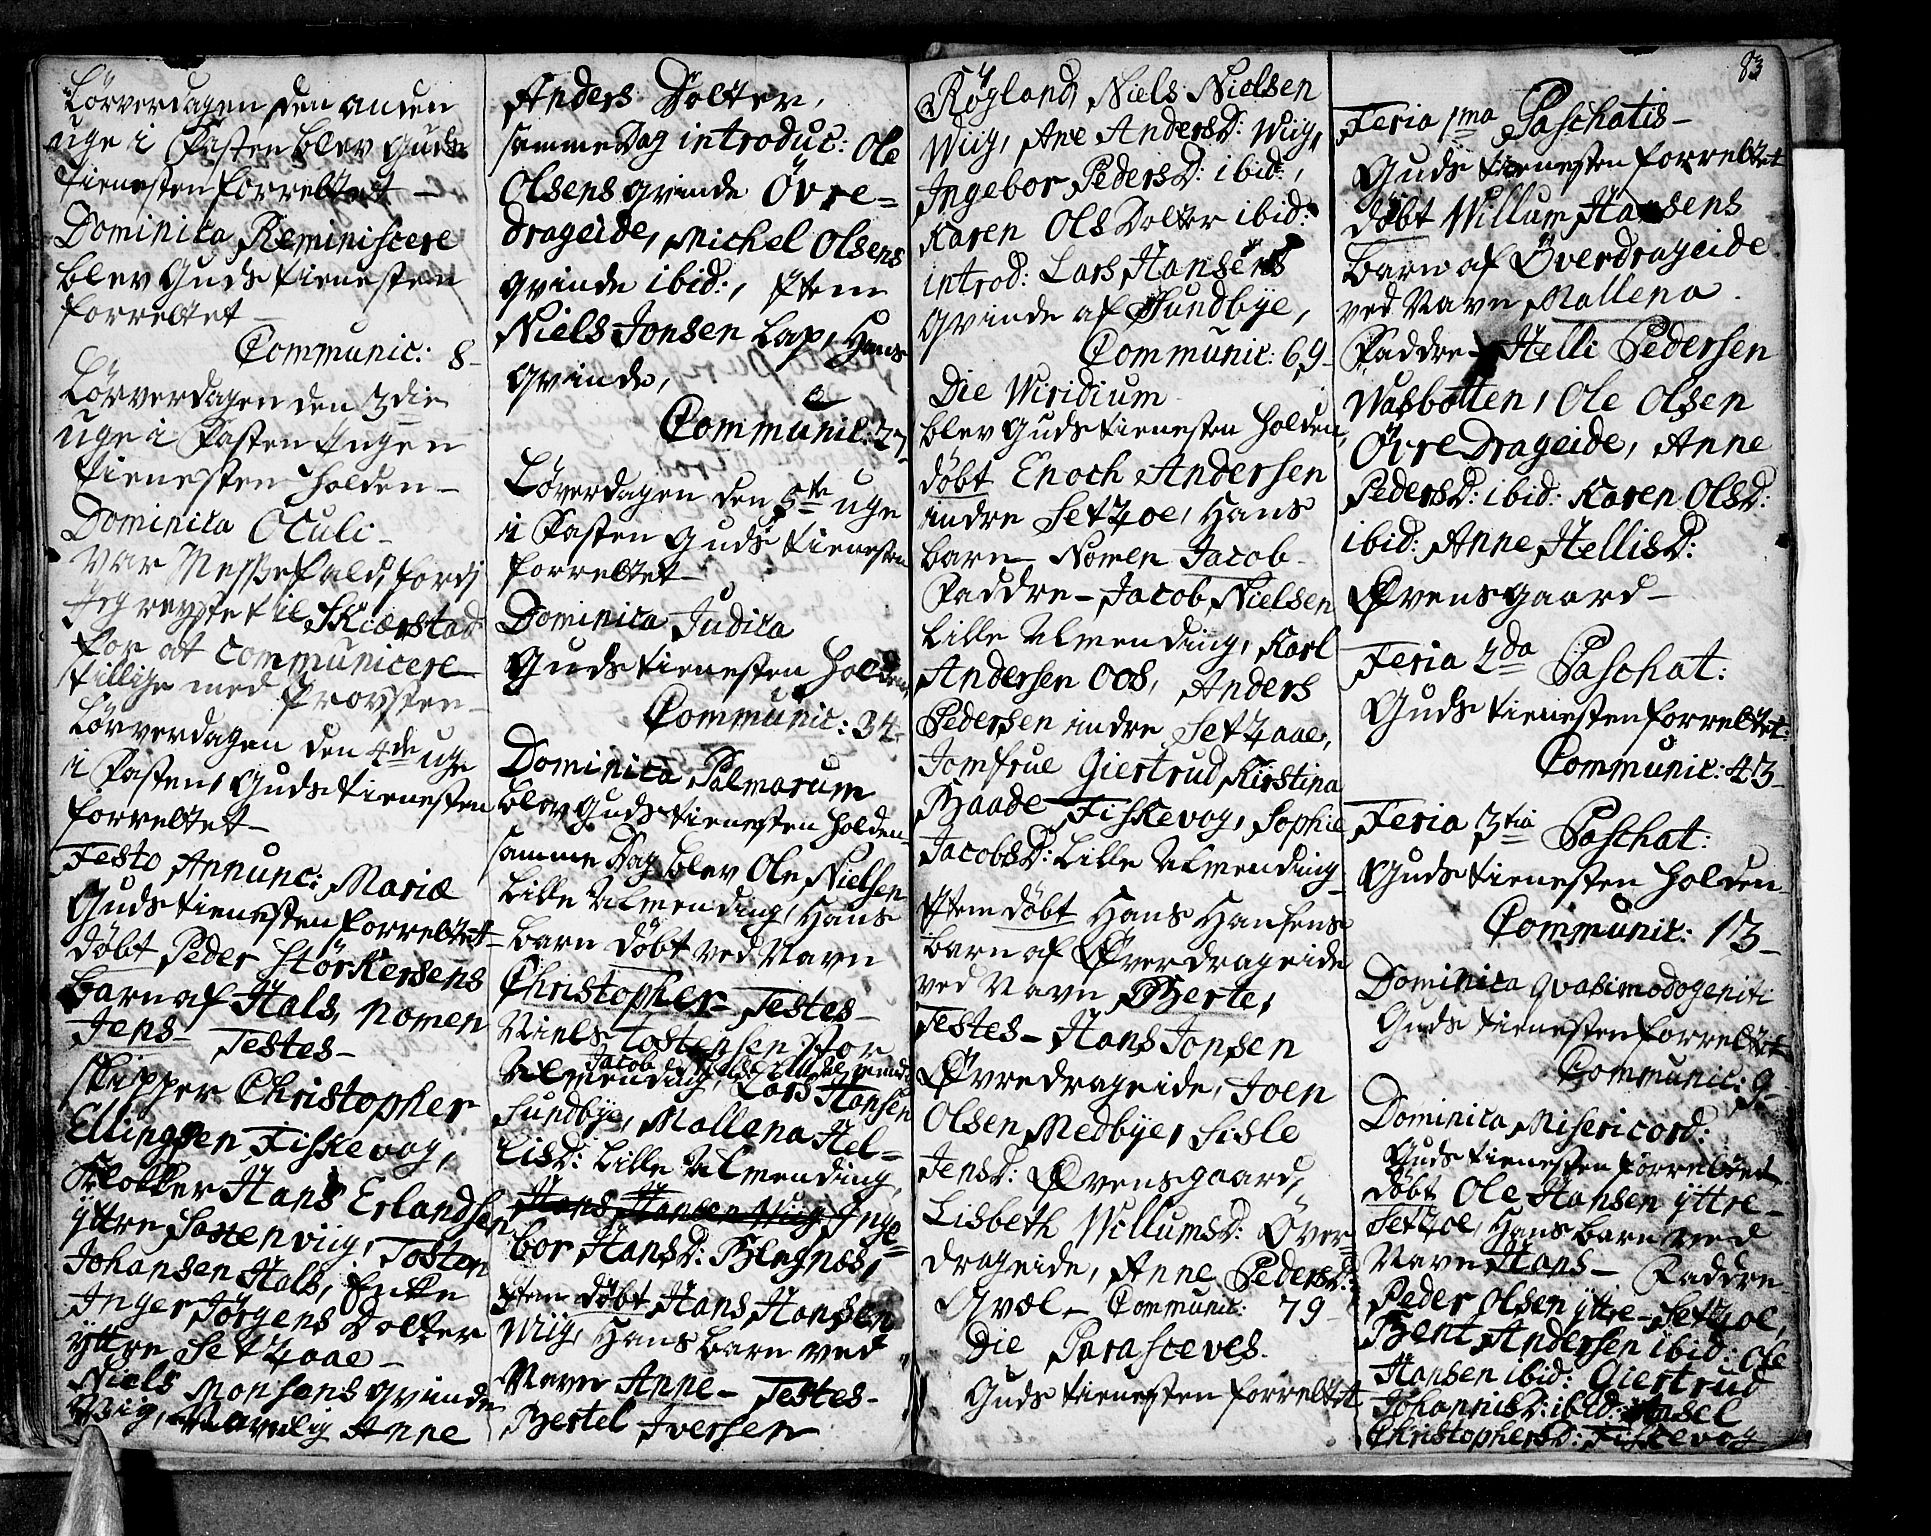 Lörverdagen den anden
uge i Fasten blev Guds
tienesten forrettet —
Dominica Reminiscere
blev Guds tienesten
forrettet —
Communic: 8 -
Lörverdagen den 3die
uge i Fasten Ingen
tienesten holden —
Dominica Oculi -
var Messefald, fordi
Jeg reyste til Skierstad
for at communicere
tillige med Provsten —
Lörverdagen den 4de uge
i Fasten, Guds tienesten
forrettet —
Festo Annunc: Mariæ
Guds tienesten forrettet —
döbt Peder Störkersens
barn af Hals, nomen
Jens — Testes —
Skipper Christopher
Ellingsen Fiskevog,
Klokker Hans Erlandsen
ÿttre , Tosten
Johansen Hals, Enke
Inger Jörgens Dotter
ÿttre Setzaae —
Niels Monsens qvinde
Vig, Navnlig Anne
Anders Dotter,
samme Dag introduc: Ole
Olsens qvinde Övre=
drageide, Michel Olsens
qvinde ibid:, Item
Niels Jonsen Lap, Hans
qvinde,
Communic: 27
Löverdagen den 5te uge
i Fasten Guds tienesten
forrettet —
Dominica Judica
Guds tienesten holden
Communic: 34 -
Dominica Palmarum
blev Guds tienesten holden
samme Dag blev Ole Nielsen
Lille Almending, Hans
barn döbt ved Navn
Christopher — Testes —
Niels Tostensen Stor
Almending, Jacob Lars Hansen
Sundbÿe, Mallena Hel=
lisD: Lille Almending,
Hans Hansen Wiig Inge=
bor HansD: Blegnes,
Item döbt Hans Hansen
Wiig, Hans barn ved
Navn Anne — Testes —
Bertel Iversen
Rögland, Niels Nielsen
Wiig, Ane AndersD: Wiig,
Ingebor PedersD: ibid:,
Karen Ols Dotter ibid:
introd: Lars Hansens
qvinde af Sundbÿe,
Communic: 69 -
Die Viridium
blev Guds tienesten holden,
döbt Enoch Andersen
indre Setzoe, Hans
barn — Nomen Jacob —
Faddre — Jacob Nielsen
Lille Almending, Karl
Andersen Oos, Anders
Pedersen indre Setzaae,
Jomfrue Giertrud Kirstina
Baade Fiskevog, Sophie
JacobsD: Lille Almending
Item döbt Hans Hansens
barn af Överdrageide
ved Navn Berte,
Testes — Hans Jonsen
Övredrageide, Joen
Olsen Medbÿe, Sisle
JensD: Övensgaard,
Lisbeth WillumsD: Över=
drageide, Anne PedersD:
Qvæl — Communic: 79 -
Die Parasceves
Guds tienesten forrettet
83
Feria 1ma Paschatis —
Guds tienesten forrettet
döbt Willum Hansens
barn af Överdrageide
ved Navn Mallena
Faddre — Helli Pedersen
Wasbotten, Ole Olsen
Övre Drageide, Anne
PedersD: ibid: Karen OlsD:
ibid: Anne HellisD:
Övensgaard —
Feria 2da Paschat:
Guds tienesten forrettet
Communic: 43 -
Feria 3tia Paschat:
Guds tienesten holden
Communic: 13 -
Dominica Qvasimodogeniti
Guds tienesten forrettet
Communic: 9 -
Dominica Misericord:
Guds tienesten forrettet
döbt Ole Hansen ÿttre
Setzoe, Hans barn ved
Navn Hans — Faddre
Peder Olsen ÿttre Setzoe,
Bent Andersen ibid: Ole
Hansen ibid: Giertrud
JohannisD: ibid:
ChristophersD: Fiskevog